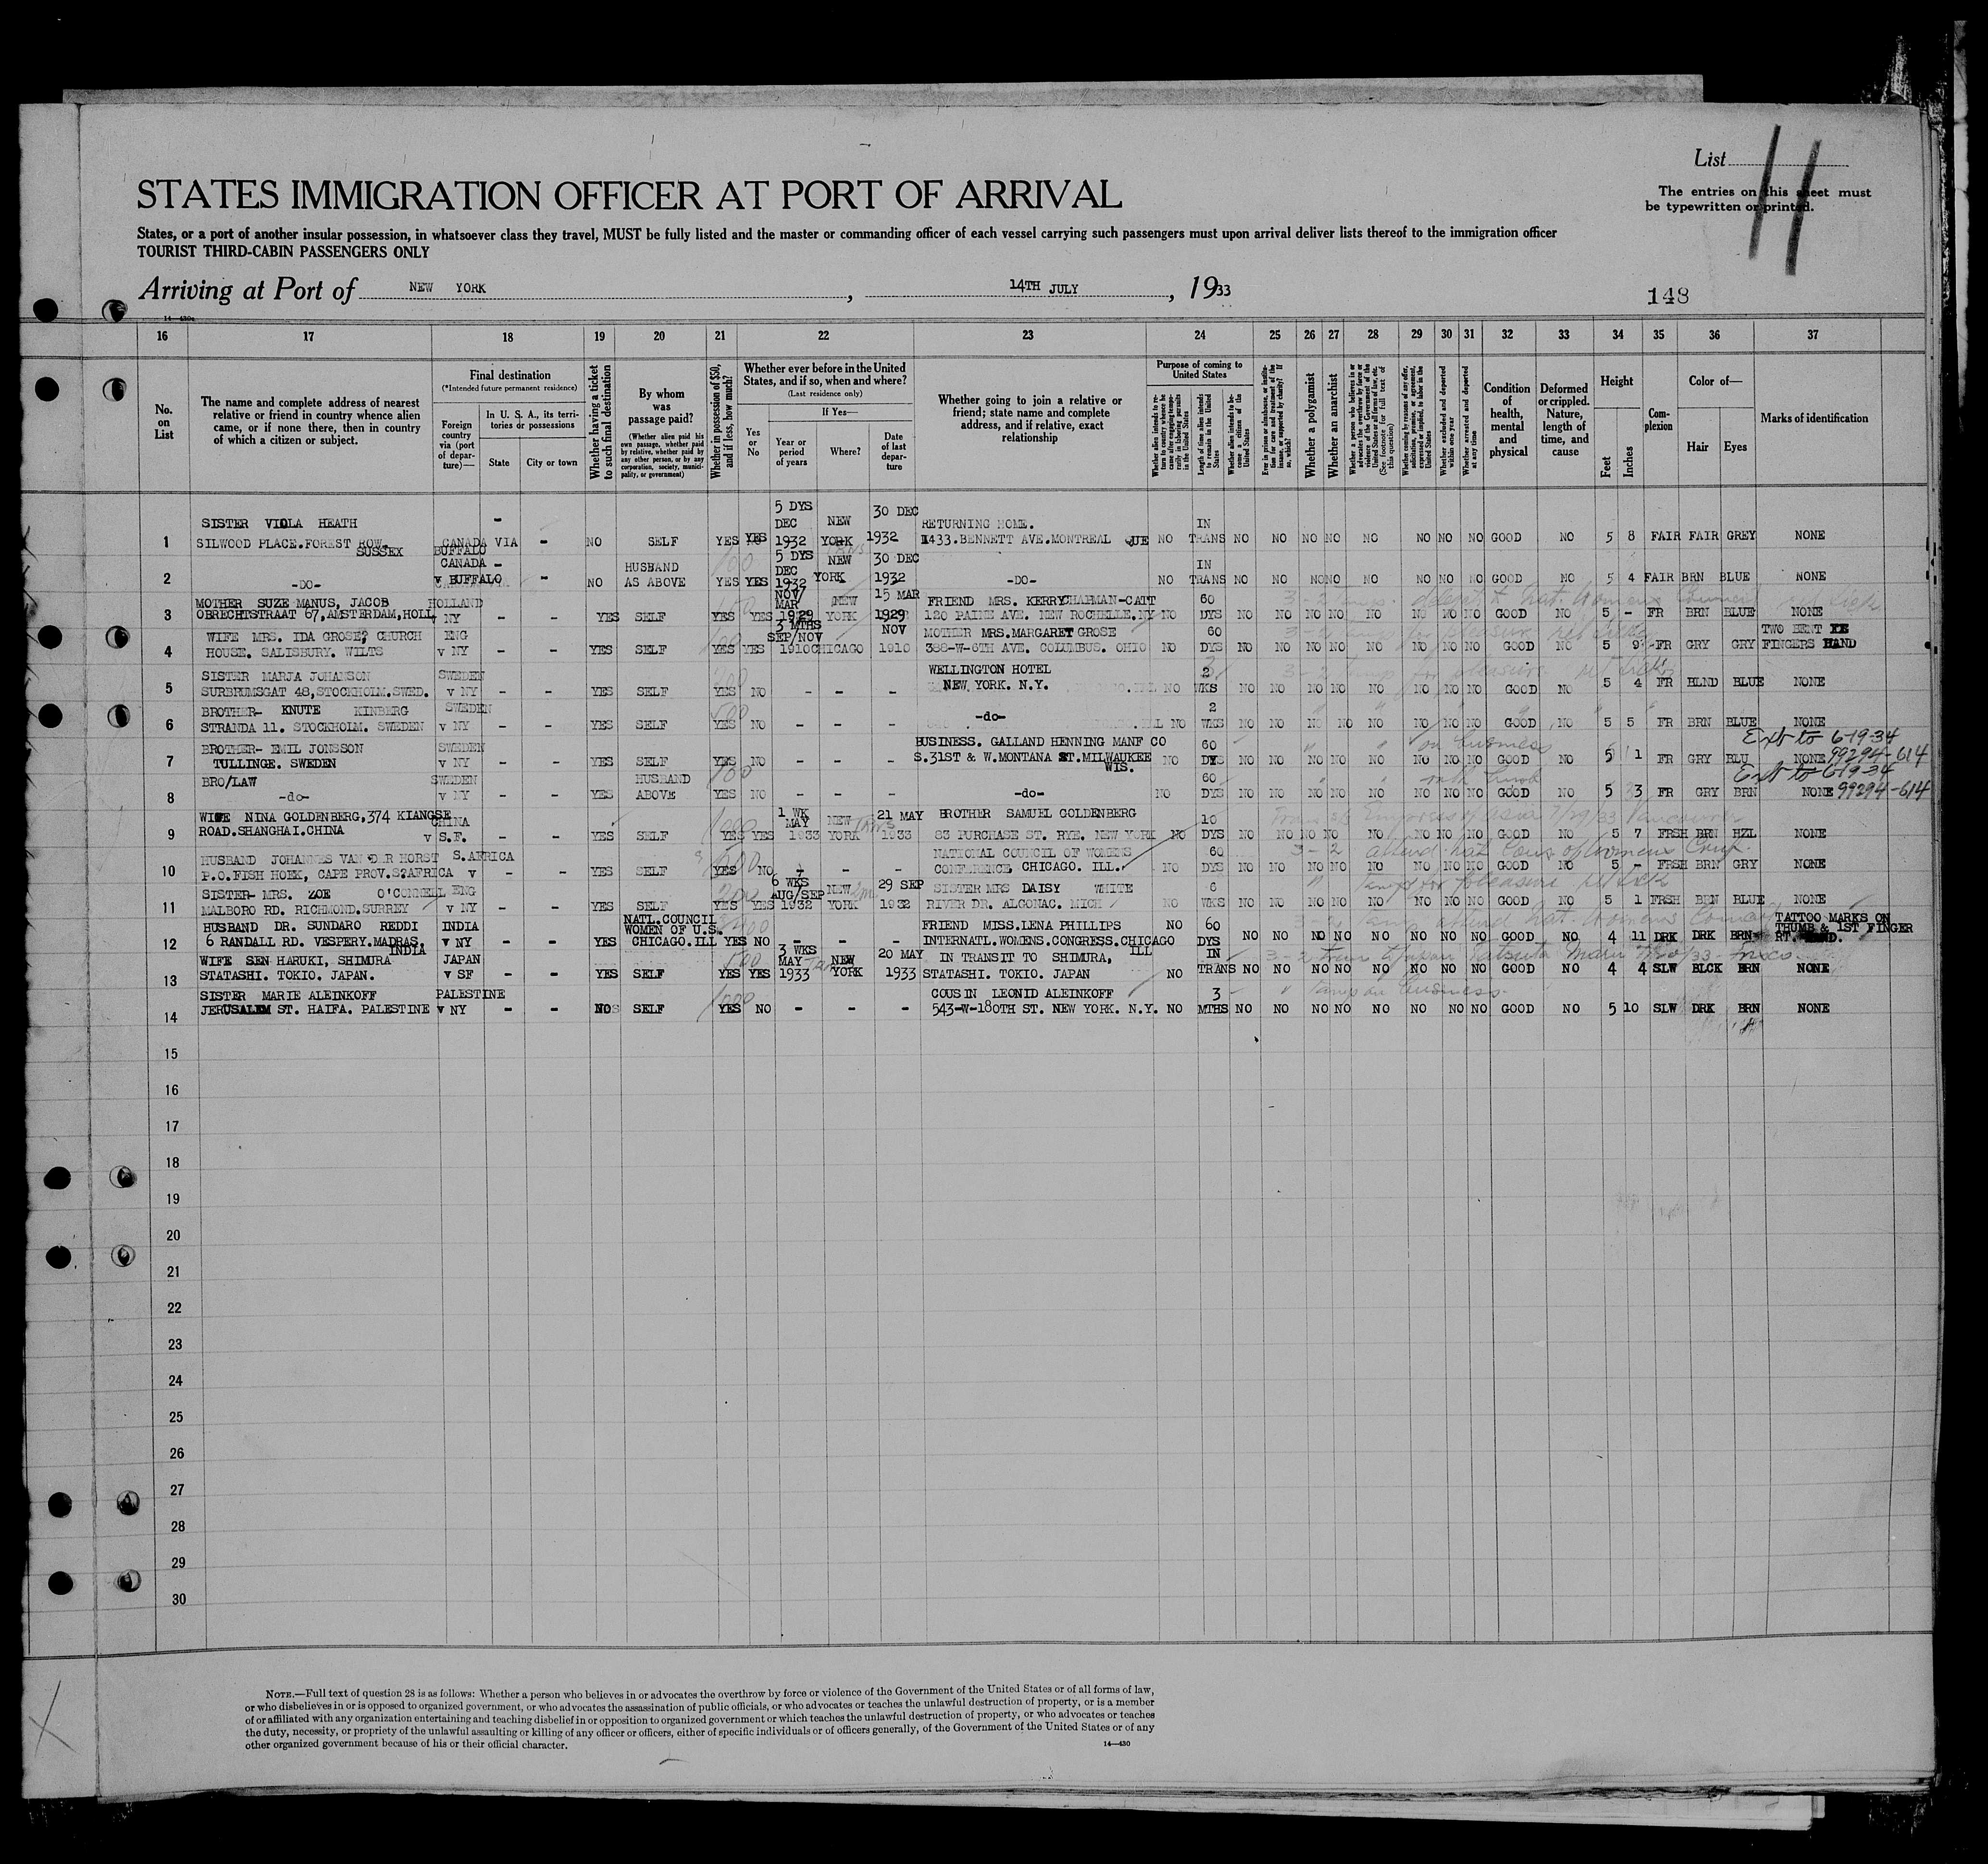 List 11
The entries on this sheet must
be typewritten or printed.
STATES IMMIGRATION OFFICER AT PORT OF ARRIVAL
States, or a port of another insular possession, in whatsoever class they travel, MUST be fully listed and the master or commanding officer of each vessel carrying such passengers must upon arrival deliver lists thereof to the immigration officer
TOURIST THIRD-CABIN PASSENGERS ONLY
Arriving at Port of NEW YORK, 14TH JULY, 1933
148
14-430c
16 17 18 19 20 21 22 23 24 25 26 27 28 29 30 31 32 33 34 35 36 37
No. on List
The name and complete address of nearest relative or friend in country whence alien came, or if none there, then in country of which a citizen or subject.
Final destination
(*Intended future permanent residence)
Foreign country via (port of departure)—
In U. S. A., its territories or possessions
State
City or town
Whether having a ticket to such final destination
By whom was passage paid?
(Whether alien paid his own passage, whether paid by relative, whether paid by any other person, or by any corporation, society, municipality, or government)
Whether in possession of $50, and if less, how much?
Whether ever before in the United States, and if so, when and where?
(Last residence only)
Yes or No
If Yes—
Year or period of years
Where?
Date of last departure
Whether going to join a relative or friend; state name and complete address, and if relative, exact relationship
Purpose of coming to United States
Whether alien intends to return to country whence he came after engaging temporarily in laboring pursuits in the United States
Length of time alien intends to remain in the United States
Whether alien intends to become a citizen of the United States
Ever in prison or almshouse, or institution for care and treatment of the insane, or supported by charity? If so, which?
Whether a polygamist
Whether an anarchist
Whether a person who believes in or advocates the overthrow by force or violence of the Government of the United States or all forms of law, etc. (See footnote for full text of this question)
Whether coming by reasons of any offer, solicitation, promise, or agreement, expressed or implied, to labor in the United States
Whether excluded and deported within one year
Whether arrested and deported at any time
Condition of health, mental and physical
Deformed or crippled. Nature, length of time, and cause
Height
Feet
Inches
Complexion
Color of—
Hair
Eyes
Marks of identification
SISTER VIOLA HEATH - 5 DYS DEC NEW 30 DEC RETURNING HOME. IN
1 SILWOOD PLACE.FOREST ROW. SUSSEX CANADA VIA BUFFALO - NO SELF YES YES 1932 YORK 1932 1433.BENNETT AVE.MONTREAL QUE NO TRANS NO NO NO NO NO NO NO NO GOOD NO 5 8 FAIR FAIR GREY NONE
CANADA - HUSBAND 5 DYS DEC NEW 30 DEC IN
2 -DO- v BUFFALO - NO AS ABOVE YES YES 1932 YORK 1932 -DO- NO TRANS NO NO NO NO NO NO NO NO GOOD NO 5 4 FAIR BRN BLUE NONE
MOTHER SUZE MANUS, JACOB HOLLAND NOV/ MAR NEW 15 MAR FRIEND MRS. KERRY CHAPMAN-CATT 60
3 OBRECHTSTRAAT 67,AMSTERDAM,HOLL v NY - - YES SELF YES YES 1929 YORK 1929 120 PAINE AVE. NEW ROCHELLE.NY NO DYS NO NO NO NO NO NO NO NO GOOD NO 5 - FR BRN BLUE NONE
WIFE MRS. IDA GROSE, CHURCH ENG 3 MTHS SEP/NOV NOV MOTHER MRS.MARGARET GROSE 60 TWO BENT
4 HOUSE. SALISBURY. WILTS v NY - - YES SELF YES YES 1910 CHICAGO 1910 388-W-6TH AVE. COLUMBUS. OHIO NO DYS NO NO NO NO NO NO NO NO GOOD NO 5 9 FR GRY GRY FINGERS HAND
SISTER MARJA JOHANSON SWEDEN WELLINGTON HOTEL 2
5 SURBRUMSGAT 48,STOCKHOLM.SWED. v NY - - YES SELF YES NO - - - NEW YORK. N.Y. NO WKS NO NO NO NO NO NO NO NO GOOD NO 5 4 FR BLND BLUE NONE
BROTHER- KNUTE KINBERG SWEDEN 2
6 STRANDA 11. STOCKHOLM. SWEDEN v NY - - YES SELF YES NO - - - -do- NO WKS NO NO NO NO NO NO NO NO GOOD NO 5 5 FR BRN BLUE NONE
BROTHER- EMIL JONSSON SWEDEN BUSINESS. GALLAND HENNING MANF CO 60 on business Ext to 6-19-34
7 TULLINGE. SWEDEN v NY - - YES SELF YES NO - - - S.31ST & W.MONTANA ST.MILWAUKEE WIS. NO DYS NO NO NO NO NO NO NO NO GOOD NO 5 1 FR GRY BLU NONE 99294-614
BRO/LAW SWEDEN HUSBAND 60 Ext to 6-19-34
8 -do- v NY - - YES ABOVE YES NO - - - -do- NO DYS NO NO NO NO NO NO NO NO GOOD NO 5 3 FR GRY BRN NONE 99294-614
WIFE NINA GOLDENBERG,374 KIANGSE CHINA 1 WK MAY NEW 21 MAY BROTHER SAMUEL GOLDENBERG 10
9 ROAD.SHANGHAI.CHINA v S.F. - - YES SELF YES YES 1933 YORK 1933 83 PURCHASE ST. RYE. NEW YORK NO DYS NO NO NO NO NO NO NO NO GOOD NO 5 7 FRSH BRN HZL NONE
HUSBAND JOHANNES VAN DER HORST S.AFRICA NATIONAL COUNCIL OF WOMENS 60
10 P.O.FISH HOEK, CAPE PROV.S?AFRICA v - - YES SELF YES NO - - - CONFERENCE, CHICAGO. ILL. NO DYS NO NO NO NO NO NO NO NO GOOD NO 5 - FRSH BRN GRY NONE
SISTER- MRS. ZOE O'CONNELL ENG 6 WKS AUG/SEP NEW 29 SEP SISTER MRS DAISY WHITE 6
11 MALBORO RD. RICHMOND.SURREY v NY - - YES SELF YES YES 1932 YORK 1932 RIVER DR. ALGONAC. MICH NO WKS NO NO NO NO NO NO NO NO GOOD NO 5 1 FRSH BRN BLUE NONE
HUSBAND DR. SUNDARO REDDI INDIA NATL.COUNCIL WOMEN OF U.S. FRIEND MISS.LENA PHILLIPS NO 60 TATTOO MARKS ON
12 6 RANDALL RD. VESPERY.MADRAS. INDIA v NY - - YES CHICAGO.ILL YES NO - - - INTERNATL.WOMENS.CONGRESS.CHICAGO ILL DYS NO NO NO NO NO NO NO NO GOOD NO 4 11 DRK DRK BRN THUMB & 1ST FINGER RT. HAND.
WIFE SEN HARUKI, SHIMURA JAPAN 3 WKS MAY NEW 20 MAY IN TRANSIT TO SHIMURA, IN
13 STATASHI. TOKIO. JAPAN. v SF - - YES SELF YES YES 1933 YORK 1933 STATASHI. TOKIO. JAPAN NO TRANS NO NO NO NO NO NO NO NO GOOD NO 4 4 SLW BLCK BRN NONE
SISTER MARIE ALEINKOFF PALESTINE COUSIN LEONID ALEINKOFF 3
14 JERUSALEM ST. HAIFA. PALESTINE v NY - - NO SELF YES NO - - - 543-W-180TH ST. NEW YORK. N.Y. NO MTHS NO NO NO NO NO NO NO NO GOOD NO 5 10 SLW DRK BRN NONE
15
16
17
18
19
20
21
22
23
24
25
26
27
28
29
30
NOTE.—Full text of question 28 is as follows: Whether a person who believes in or advocates the overthrow by force or violence of the Government of the United States or of all forms of law,
or who disbelieves in or is opposed to organized government, or who advocates the assassination of public officials, or who advocates or teaches the unlawful destruction of property, or is a member
of or affiliated with any organization entertaining and teaching disbelief in or opposition to organized government or which teaches the unlawful destruction of property, or who advocates or teaches
the duty, necessity, or propriety of the unlawful assaulting or killing of any officer or officers, either of specific individuals or of officers generally, of the Government of the United States or of any
other organized government because of his or their official character.
14-430